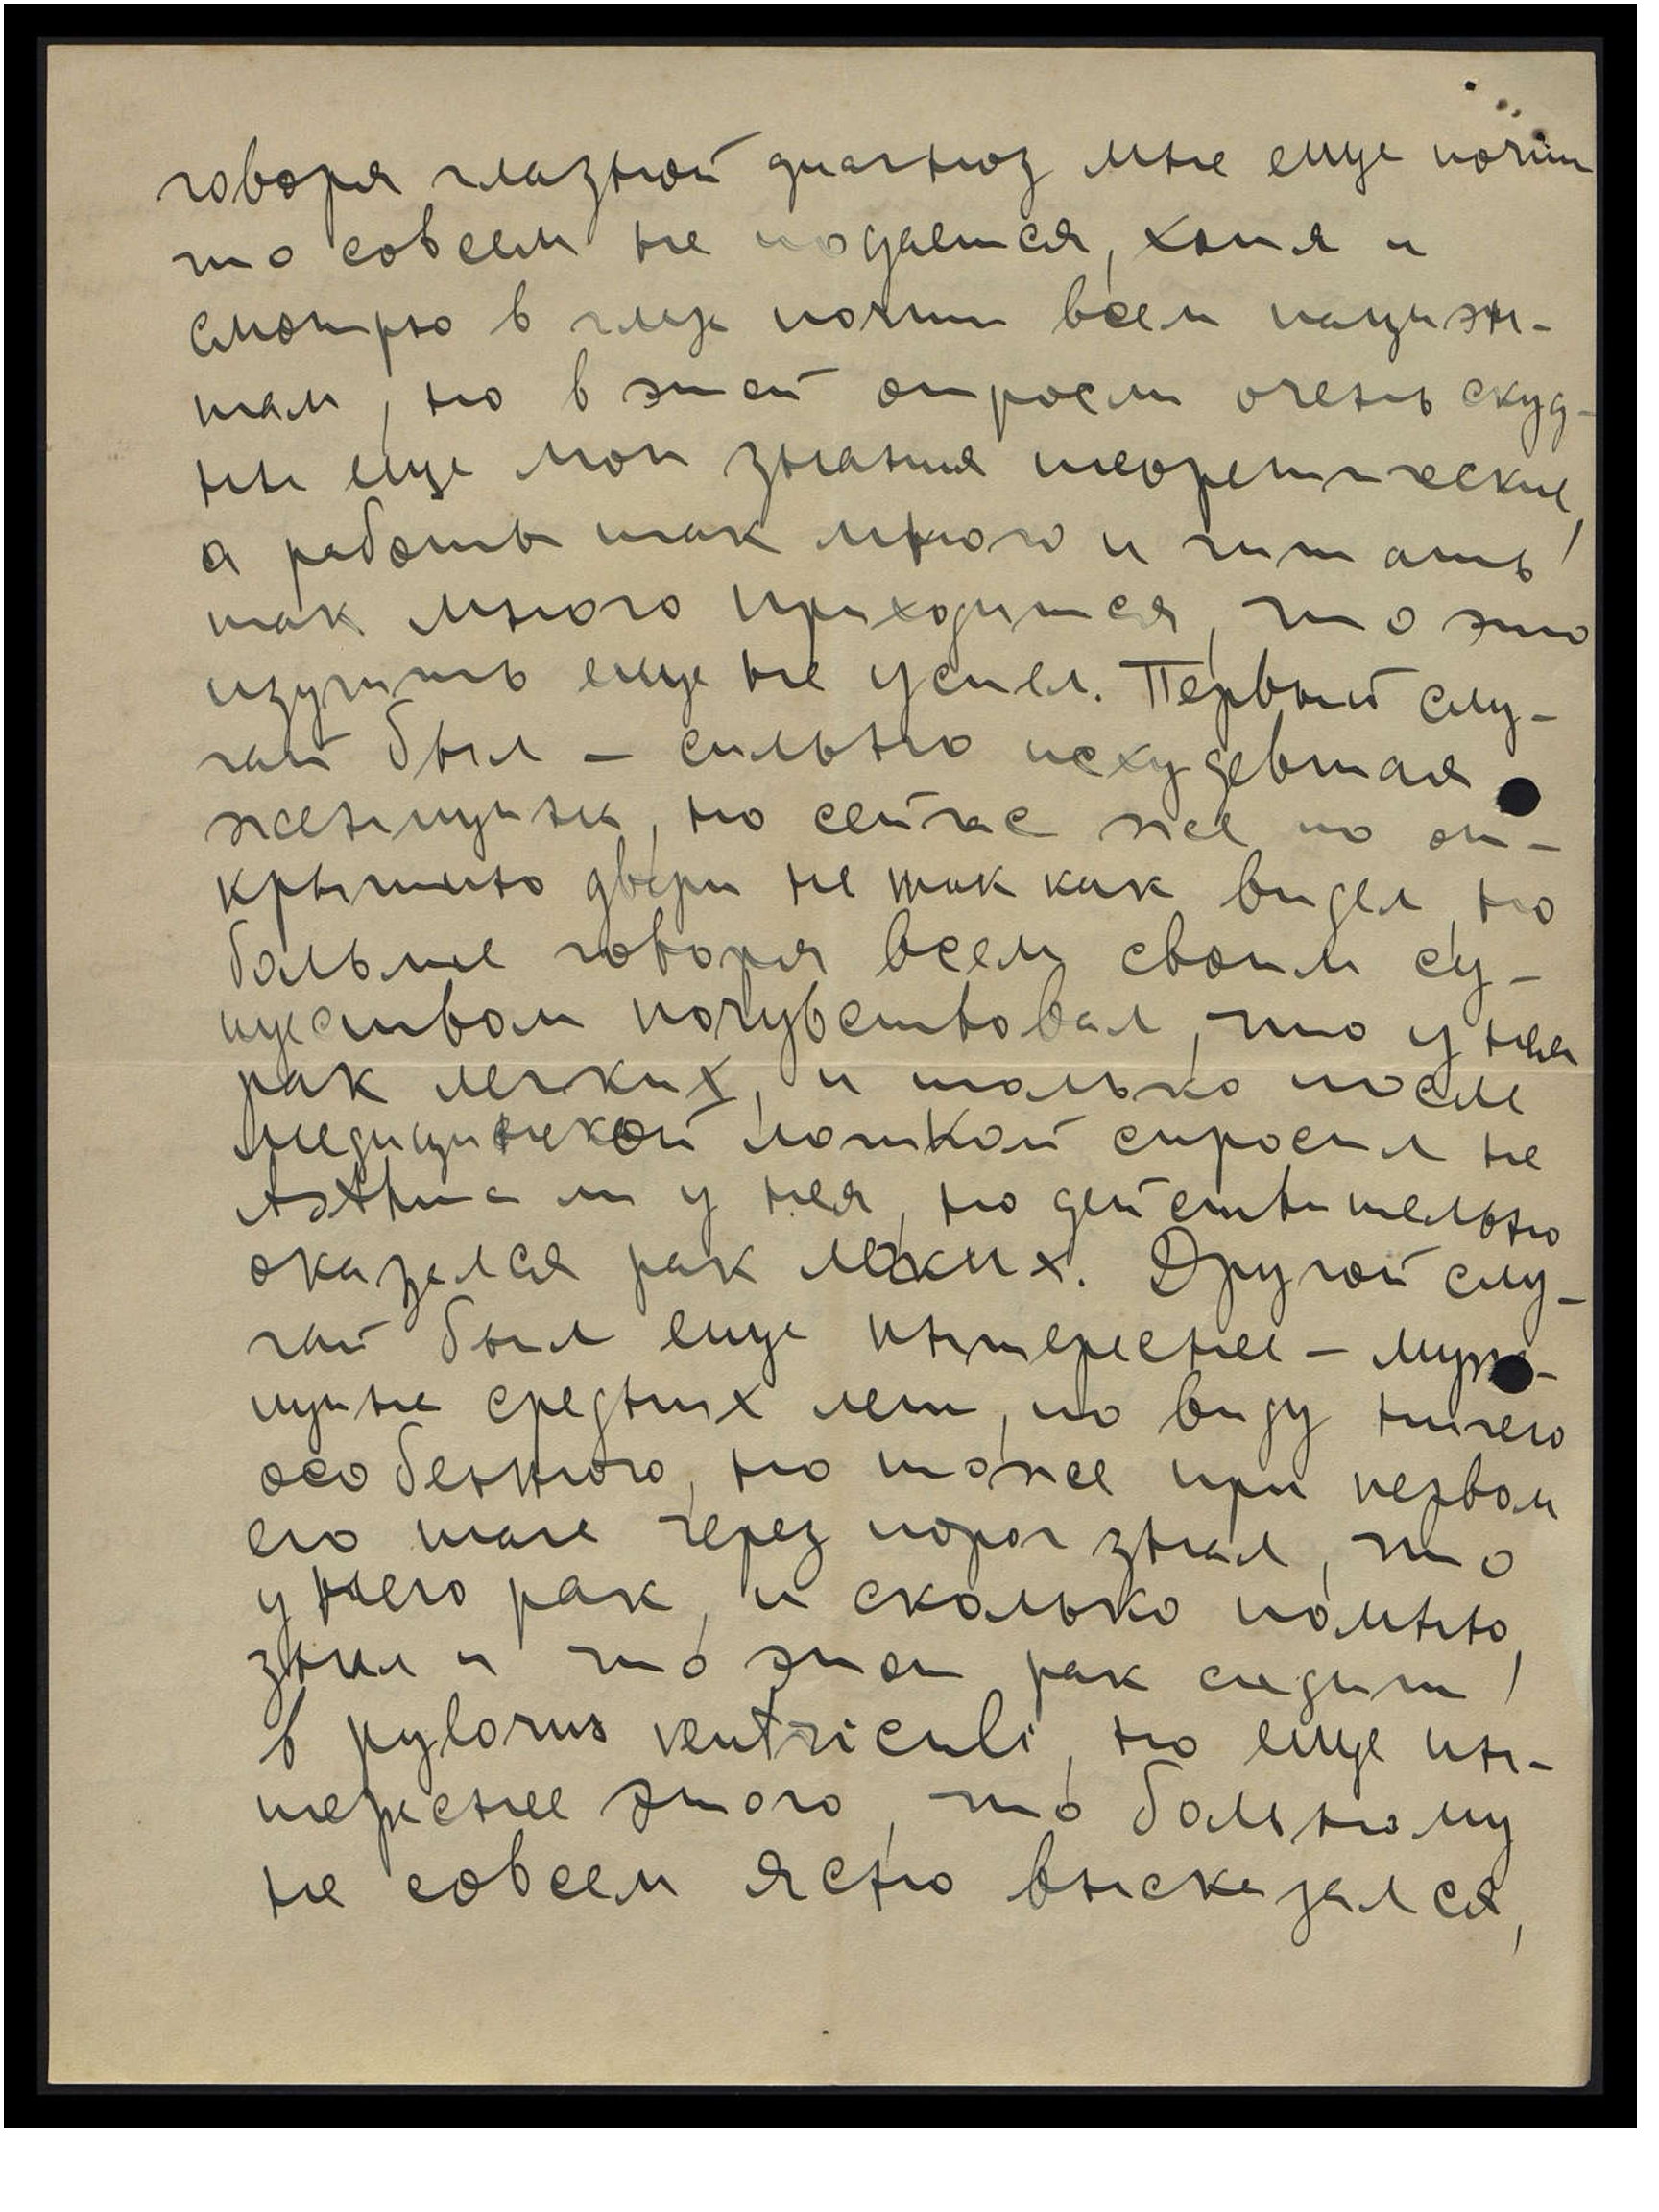 говоря глазной диагноз мне еще почти
что совсем не подается, хотя и
смотрю в глаза почти всем пациэн-
там, но в этой отросли очень скуд-
ны еще мои знания теоретические,
а работы так много и читать
так много приходится, что это
изучить еще не успел. Первый слу-
чай был – сильно исхудевшая
женщина, но сейчас же по от-
крытию двери не так как видел, но
больше говоря всем своим су-
ществом почувствовал, что у нея
рак легких, и только после
медицинской ... спросил не
Asthma ли у нея, но действительно
оказался рак легких. Другой слу-
чай был еще интереснее – муж-
щина средних лет, по виду ничего
особенного, но тоже при первом
его шаге через порог знал, что
у него рак, и сколько помню,
знал и что этот рак сидит
в pylorus ventriculi, но еще ин-
тереснее этого, что больному
не совсем ясно высказался,